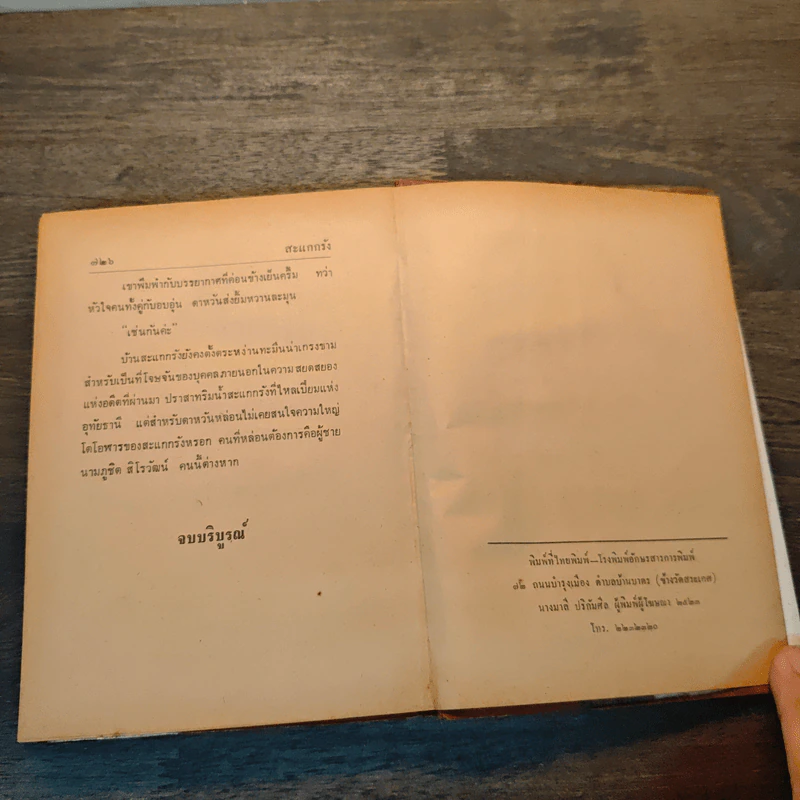 ๗๒๖ สะแกกรัง
เขาพึมพำกับบรรยากาศที่ค่อนข้างเย็นครึ้ม ทว่า
หัวใจคนทั้งคู่กับอบอุ่น ดาหวันส่งยิ้มหวานละมุน
"เช่นกันค่ะ"
บ้านสะแกกรังยังคงตั้งตระหง่านทะมึนน่าเกรงขาม
สำหรับเป็นที่โจษจันของบุคคลภายนอกในความสยดสยอง
แห่งอดีตที่ผ่านมา ปราสาทริมน้ำสะแกกรังที่ไหลเปี่ยมแห่ง
อุทัยธานี แต่สำหรับดาหวันหล่อนไม่เคยสนใจความใหญ่
โตโอฬารของสะแกกรังหรอก คนที่หล่อนต้องการคือผู้ชาย
นามภูชิต สิโรวัฒน์ คนนี้ต่างหาก
จบบริบูรณ์
พิมพ์ที่ไทยพิมพ์—โรงพิมพ์อักษรสารการพิมพ์
ถนนบำรุงเมือง ตำบลบ้านบาตร (ข้างวัดสระเกศ)
นางมาลี ปริกัมศีล ผู้พิมพ์ผู้โฆษณา ๒๕๒๓
โทร.